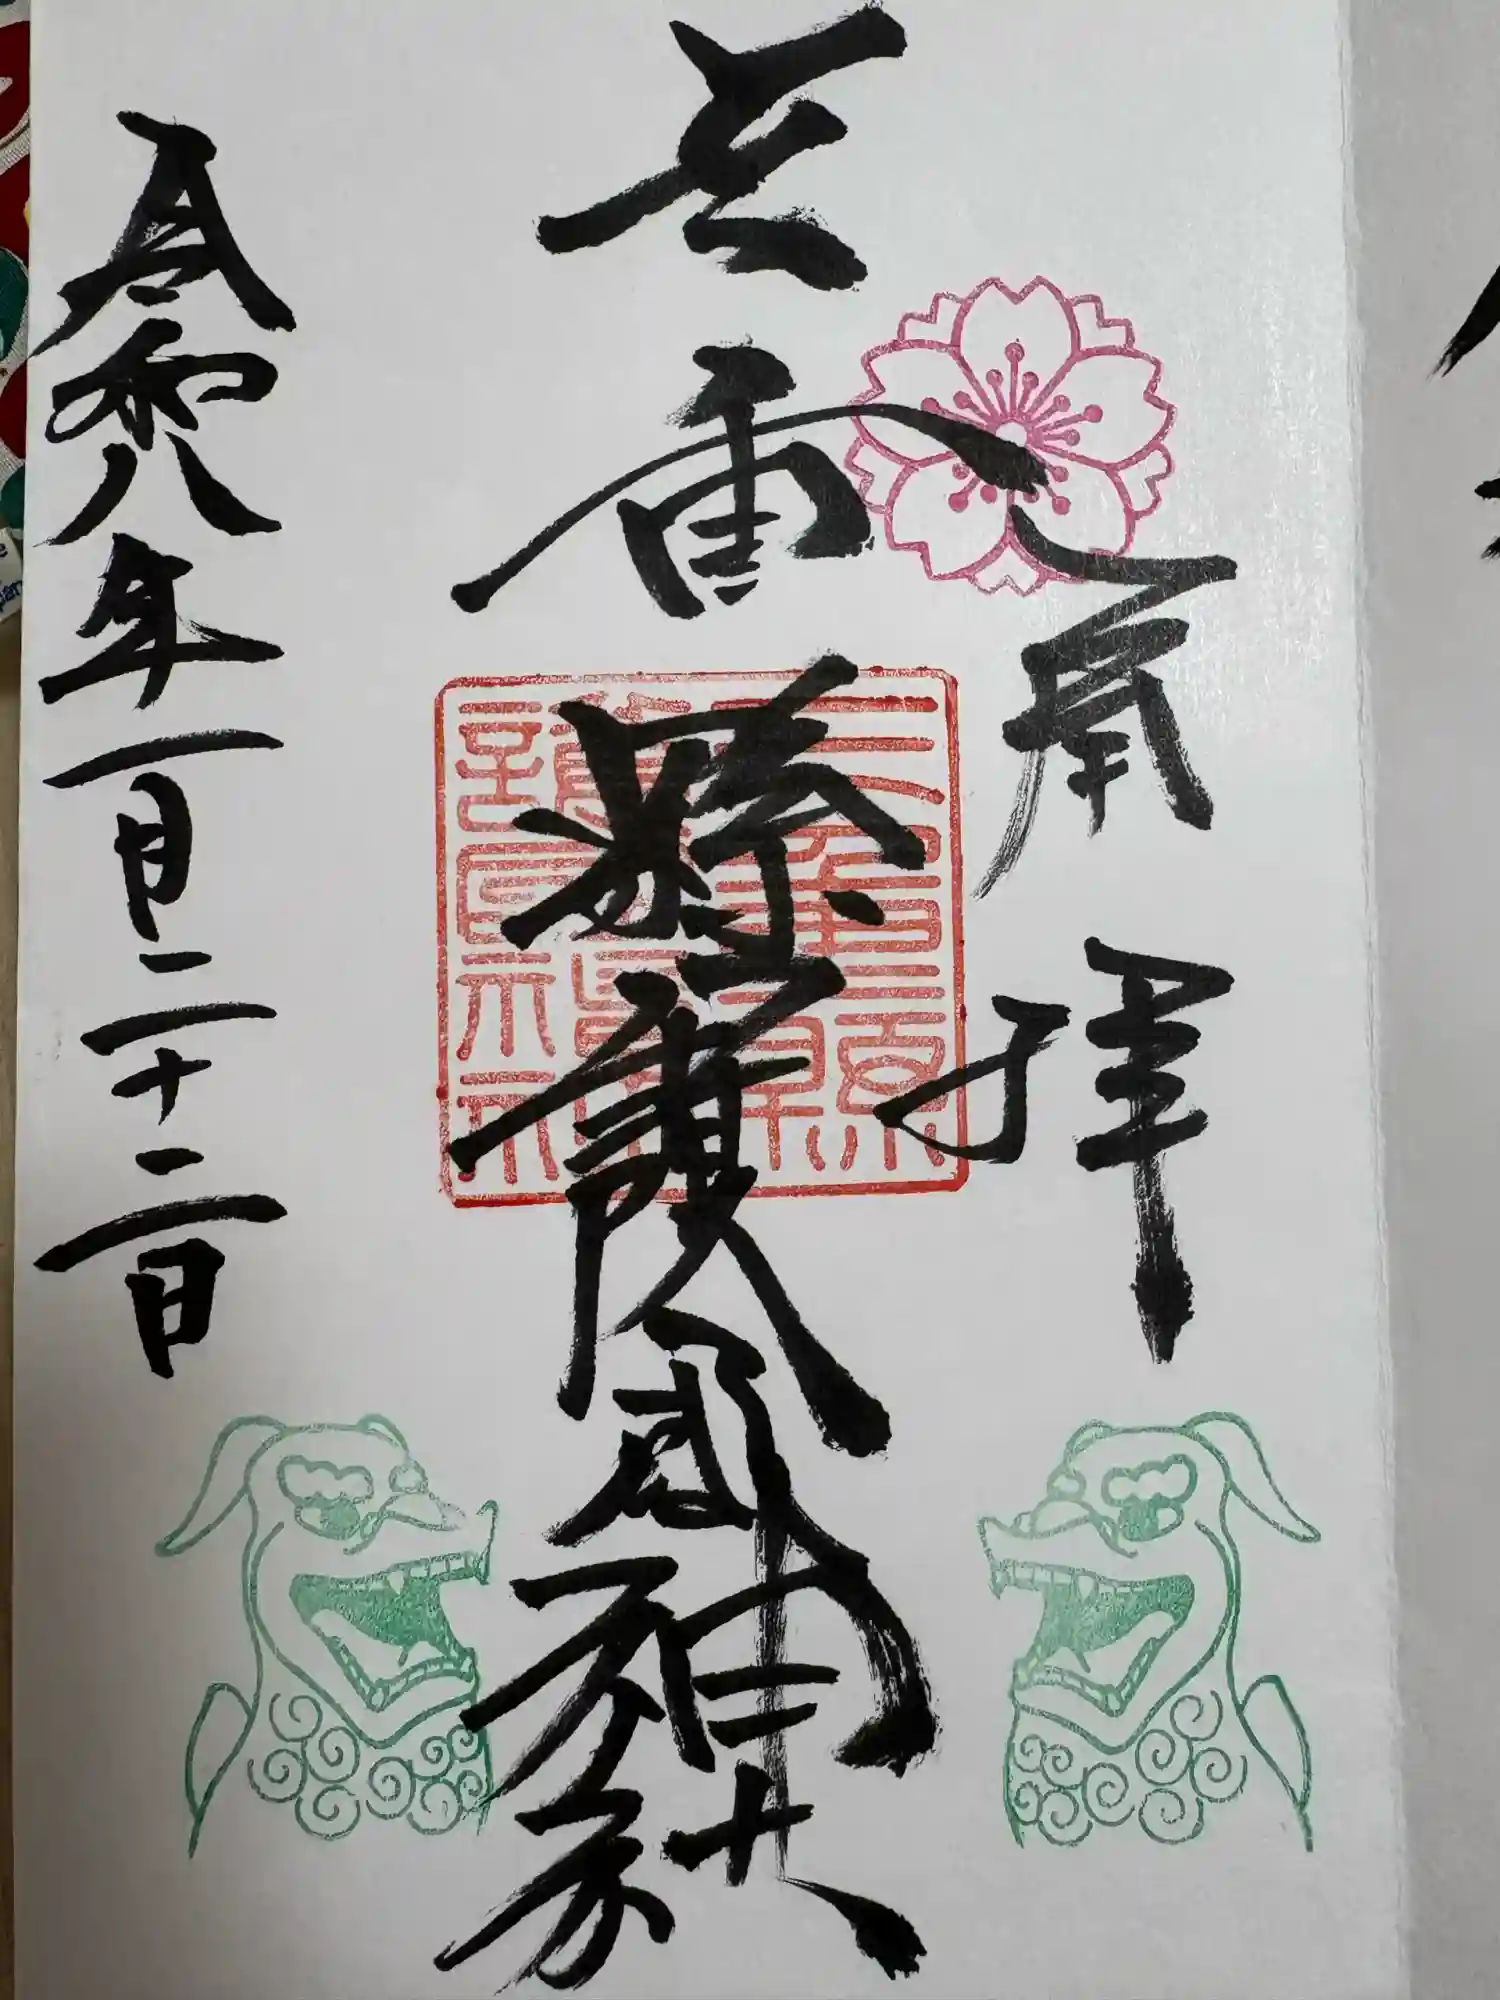 奉拝
三重縣護國神社
令和八年一月二十二日